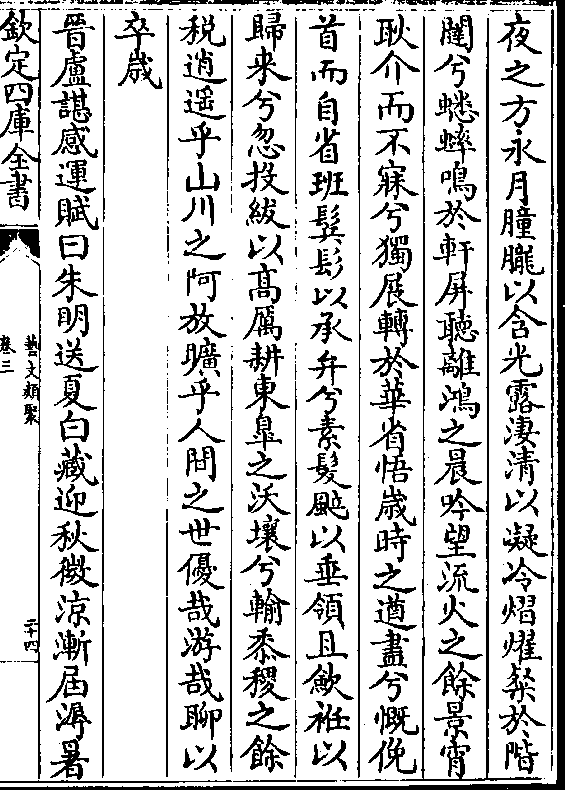 夜之方永月朣朧以含光露淒清以凝冷熠燿粲於階
闥兮蟋蟀鳴於軒屏聽離鴻之晨吟望流火之餘景宵
耿介而不寐兮獨展轉於華省悟歲時之遒盡兮慨俛
首而自省班鬢髟以承弁兮素髮颯以垂領且斂衽以
歸来兮忽投紱以高厲耕東臯之沃壤兮輸黍稷之餘
税逍遥乎山川之阿放曠乎人間之世優哉游哉聊以
卒歲
晉盧諶感運賦曰朱明送夏白藏迎秋微涼漸届溽暑
欽定四庫全書
藝文類聚
卷三
二十四